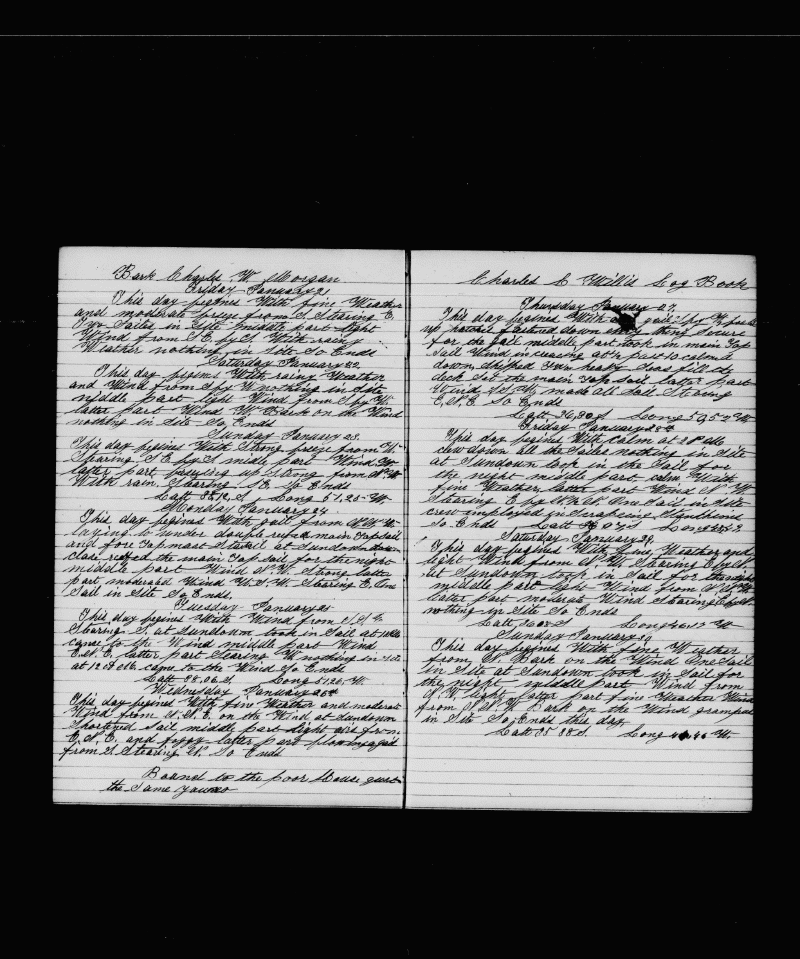 Bark Charles W. Morgan
Friday January 21
This day begines With fine Weather
and moderate breize from S. Stearing E
Two Sailes in Site middle part light
Wind from S.E. by S. With rainy
Weather nothing in Site So Ends
Saturday January 22
This day begines With rainy Weather
and Wind from S by W nothing in Site
middle part light Wind from S by W.
latter part Wind W. Bark on the Wind
nothing in Site So Ends
Sunday January 23.
This day begines With Strong breize from W.
Stearing S.E. by S midle part Wind
latter part breizes up Strong from
With rain Stearing S.E. So Ends
Latt 35,12 S, Long 51,25 W.
Monday January 24
This day begines With gail from
laying to under double refed main Topsail
and fore Topmast Staisail at Sundown
close reffed the main Topsail for the night
middle part Wind S.W. Strong latter
part moderate Wind W.S.W. Stearing E. One
Sail in Site So Ends.
Tuesday January 25
This day begines With Wind from
Stearing S. at Sundown took in Sail at
came to the Wind middle part Wind
E.N.E. latter part Stearing W nothing in
at 12 clk came to the Wind So Ends
Latt 38,06 S Long 51,20 W.
Wednesday January 26
This day begines With fine Weather and moderate
Wind from N.N.E. on the Wind at Sundown
Shortened Sail middle part light airs from
E.N.E. and foggy latter part
from Stearing N. So Ends
Bound to the poor House
the Same
Charles C Willis Log Book
Thursday January 27.
This day begines With a gail
up hatches fastened down thing Secure
for the gail middle part took in main Top
Sail Wind increasing at
down Shipped two heavy Seas fill the
deck Set the main Topsail latter part
Wind made all Sail Stearing
E.N.E So Ends
Latt 36,30 S Long 50,52 W
Friday January 28
This day begines With calm at
clew down all the Sailes nothing in Site
at Sundown took in the Sail for
the night middle part calm With
fine Weather latter part Wind N.W.
Stearing E by N. One Sail in Site
crew employed in
So Ends Latt S Long
Saturday January 29,
This day begines With fine Weather and
light Wind from Stearing E by N.
at Sundown took in Sail for the night
middle part light Wind from
latter part moderate Wind Stearing E by N
nothing in Site So Ends
Latt S Long W
Sunday January 30
This day begines With fine Weather
from N. Bark on the Wind One Sail
in Site at Sundown took in Sail for
the night middle part Wind from
N.W. light latter part fine Weather Wind
from N.N.W Bark on the Wind
in Site So Ends this day
Latt 35 38 S Long W.